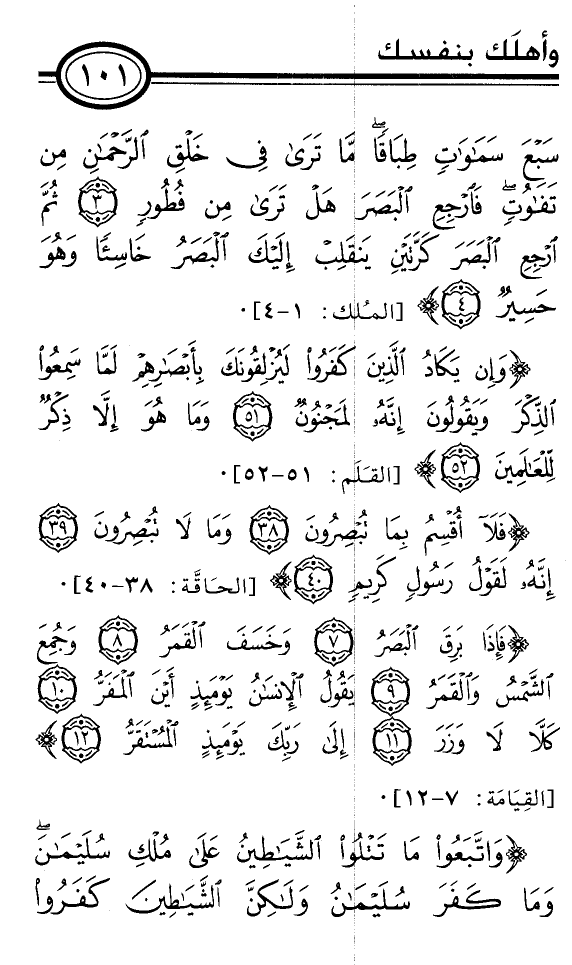 وأهلَك بنفسك
١٠١
سَبْعَ سَمَٰوَٰتٖ طِبَاقٗاۖ مَّا تَرَىٰ فِي خَلْقِ ٱلرَّحْمَٰنِ مِن
تَفَٰوُتٖۖ فَٱرْجِعِ ٱلْبَصَرَ هَلْ تَرَىٰ مِن فُطُورٖ ٣ ثُمَّ
ٱرْجِعِ ٱلْبَصَرَ كَرَّتَيْنِ يَنقَلِبْ إِلَيْكَ ٱلْبَصَرُ خَاسِئٗا وَهُوَ
حَسِيرٞ ٤﴾ [المُلك: ١-٤]٠
﴿وَإِن يَكَادُ ٱلَّذِينَ كَفَرُواْ لَيُزْلِقُونَكَ بِأَبْصَٰرِهِمْ لَمَّا سَمِعُواْ
ٱلذِّكْرَ وَيَقُولُونَ إِنَّهُۥ لَمَجْنُونٞ ٥١ وَمَا هُوَ إِلَّا ذِكْرٞ
لِّلْعَٰلَمِينَ ٥٢﴾ [القَلَم: ٥١-٥٢]٠
﴿فَلَآ أُقْسِمُ بِمَا تُبْصِرُونَ ٣٨ وَمَا لَا تُبْصِرُونَ ٣٩
إِنَّهُۥ لَقَوْلُ رَسُولٖ كَرِيمٖ ٤٠﴾ [الحَاقَّة: ٣٨-٤٠]٠
﴿فَإِذَا بَرِقَ ٱلْبَصَرُ ٧ وَخَسَفَ ٱلْقَمَرُ ٨ وَجُمِعَ
ٱلشَّمْسُ وَٱلْقَمَرُ ٩ يَقُولُ ٱلْإِنسَٰنُ يَوْمَئِذٍ أَيْنَ ٱلْمَفَرُّ ١٠
كَلَّا لَا وَزَرَ ١١ إِلَىٰ رَبِّكَ يَوْمَئِذٍ ٱلْمُسْتَقَرُّ ١٢﴾
[القِيَامَة: ٧-١٢]٠
﴿وَٱتَّبَعُواْ مَا تَتْلُواْ ٱلشَّيَٰطِينُ عَلَىٰ مُلْكِ سُلَيْمَٰنَۖ
وَمَا كَفَرَ سُلَيْمَٰنُ وَلَٰكِنَّ ٱلشَّيَٰطِينَ كَفَرُواْ